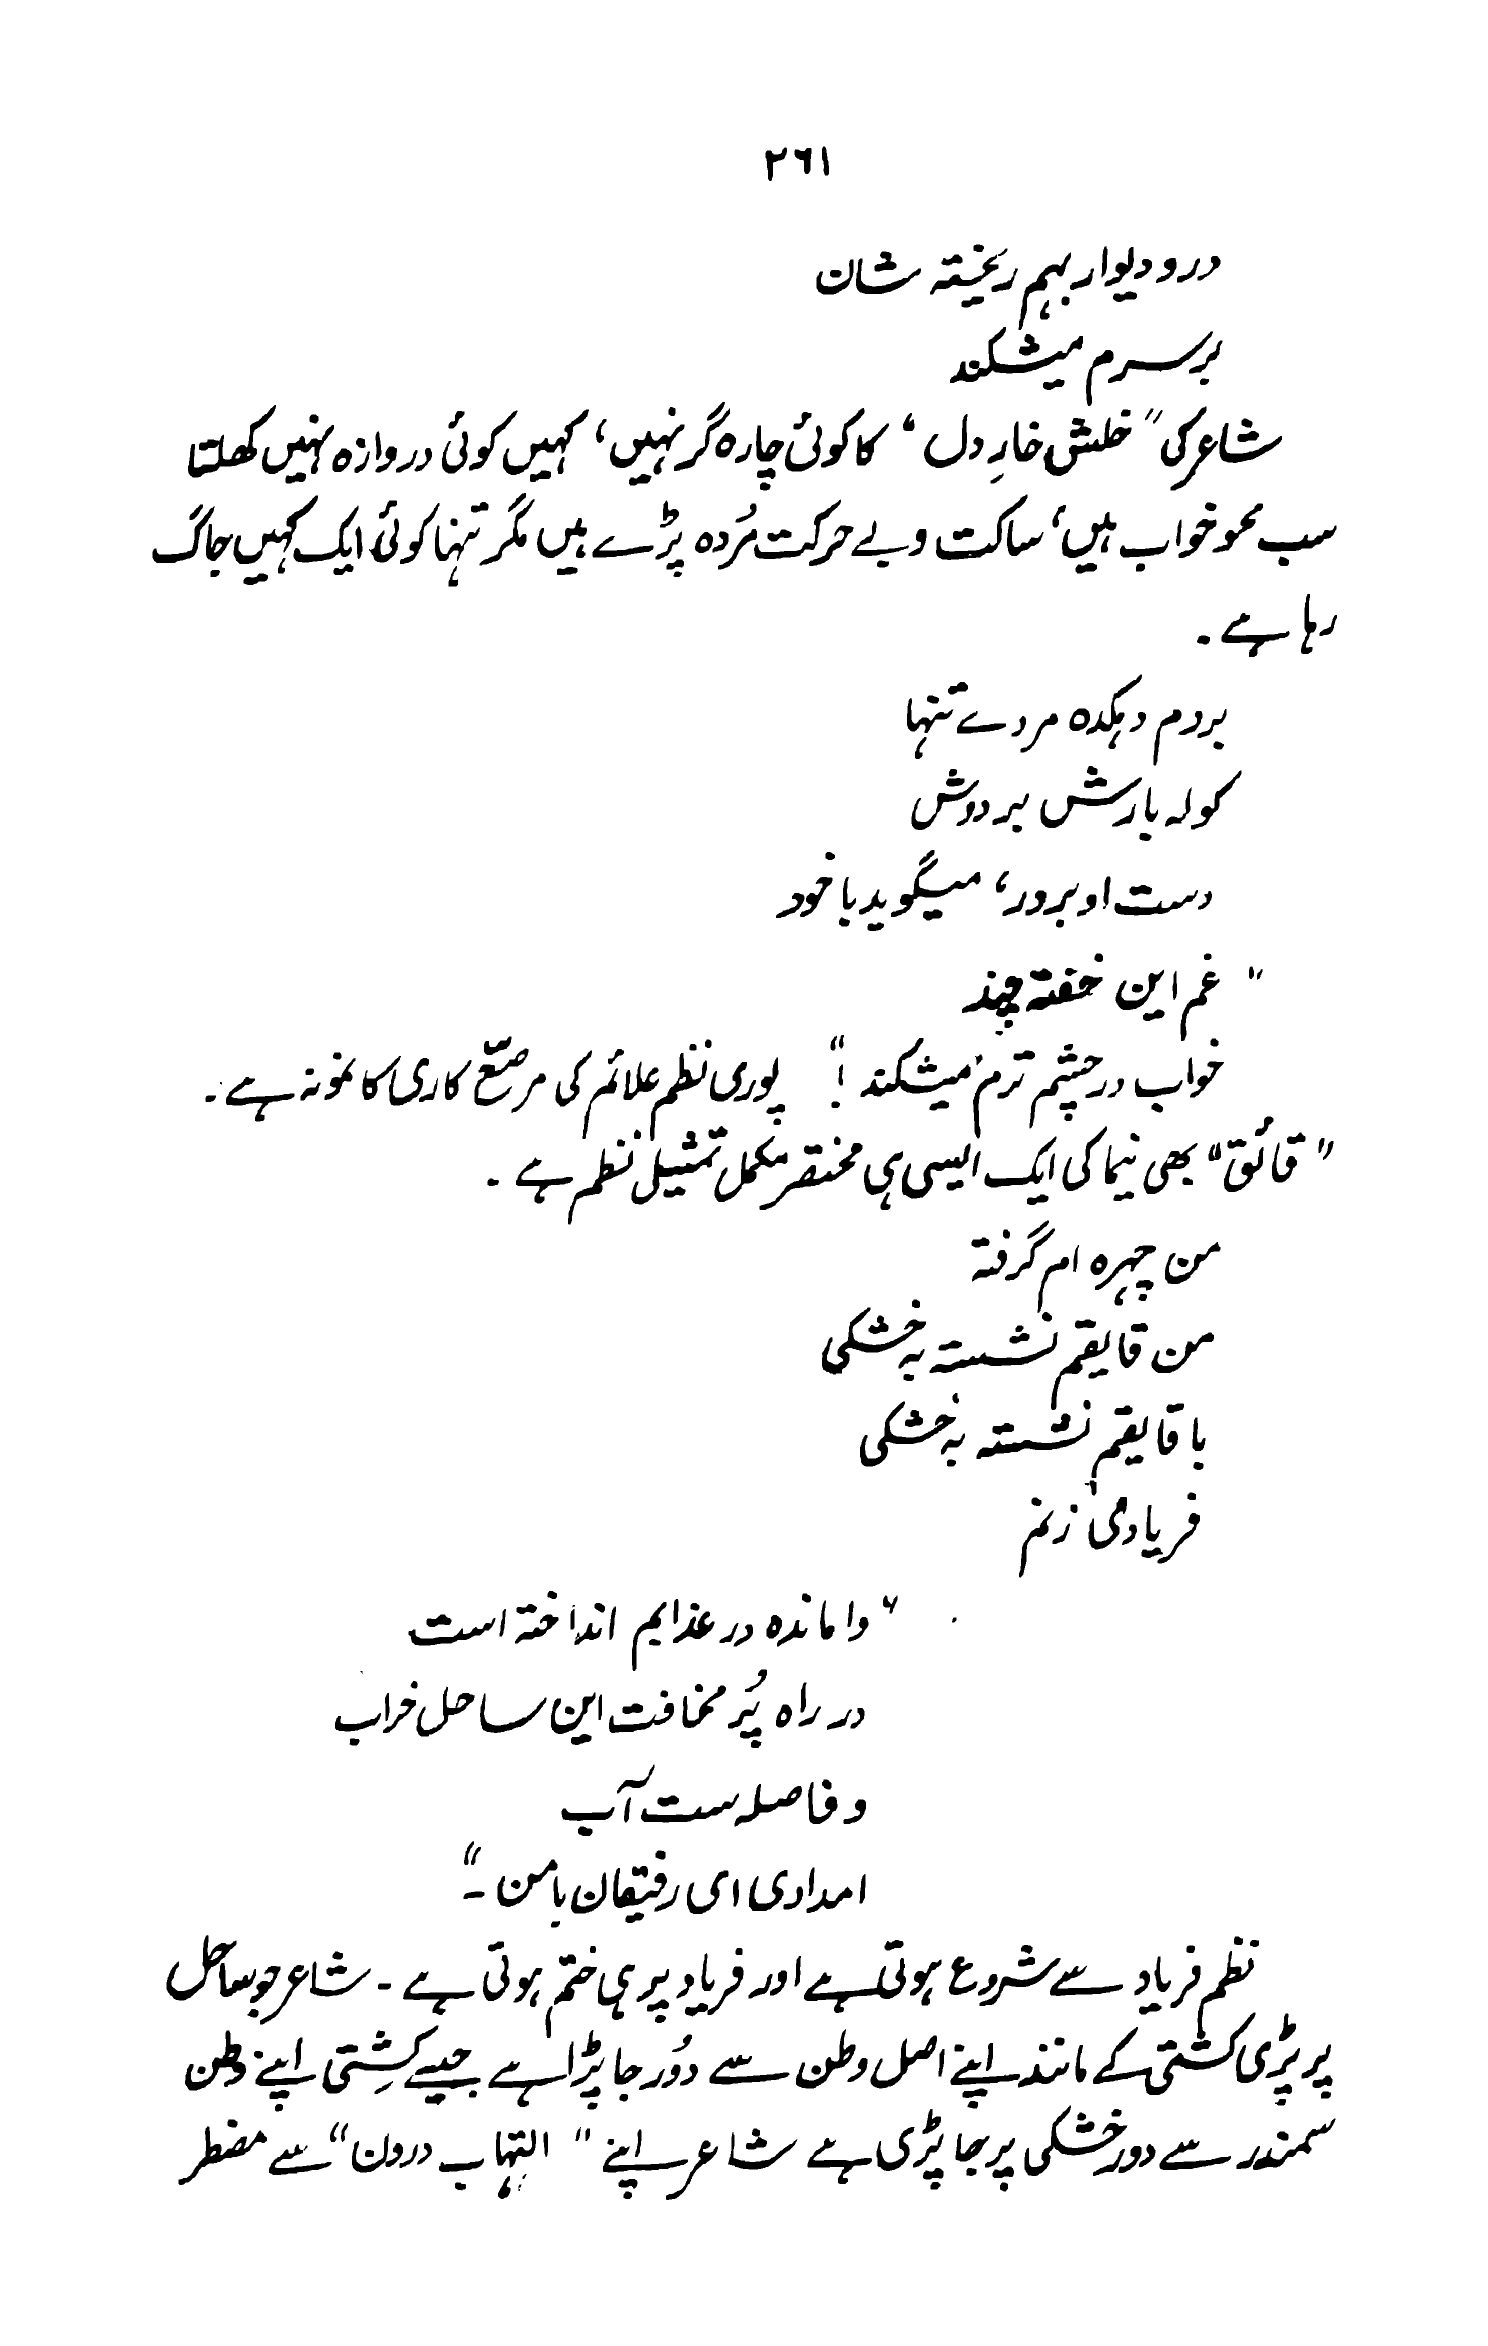 ۲۶۱
در و دیوار بہم ریختہ شان
بر سرم میشکند
شاعر کی ” خلش خارِ دل “ کا کوئی چارہ گر نہیں، کہیں کوئی دروازہ نہیں کھلتا
سب محو خواب ہیں، ساکت و بے حرکت مُردہ پڑے ہیں مگر تنہا کوئی ایک کہیں جاگ
رہا ہے۔
بر دم دہکدہ مردے تنہا
کولہ بارش بر دوش
دست او بر در، میگوید با خود
” غم این خفتہ چند
خواب در چشم ترم میشکند !“ پوری نظم علائم کی مرصّع کاری کا نمونہ ہے۔
” قائق“ بھی نیما کی ایک ایسی ہی مختصر مکمل تمثیلی نظم ہے۔
من چہرہ ام گرفتہ
من قایقم نشستہ بہ خشکی
با قایقم نشستہ بہ خشکی
فریاد می زنم
” وا ماندہ در عذابم انداختہ است
در راہ پُر مخافت این ساحل خراب
و فاصلہ ست آب
امدادی ای رفیقان با من ۔“
نظم فریاد سے شروع ہوتی ہے اور فریاد پر ہی ختم ہوتی ہے ۔ شاعر جو ساحل
پر پڑی کشتی کے مانند اپنے اصل وطن سے دُور جا پڑا ہے جیسے کشِتی اپنے وطن
سمندر سے دور خشکی پر جا پڑی ہے شاعر اپنے ” التہاب درون“ سے مضطر